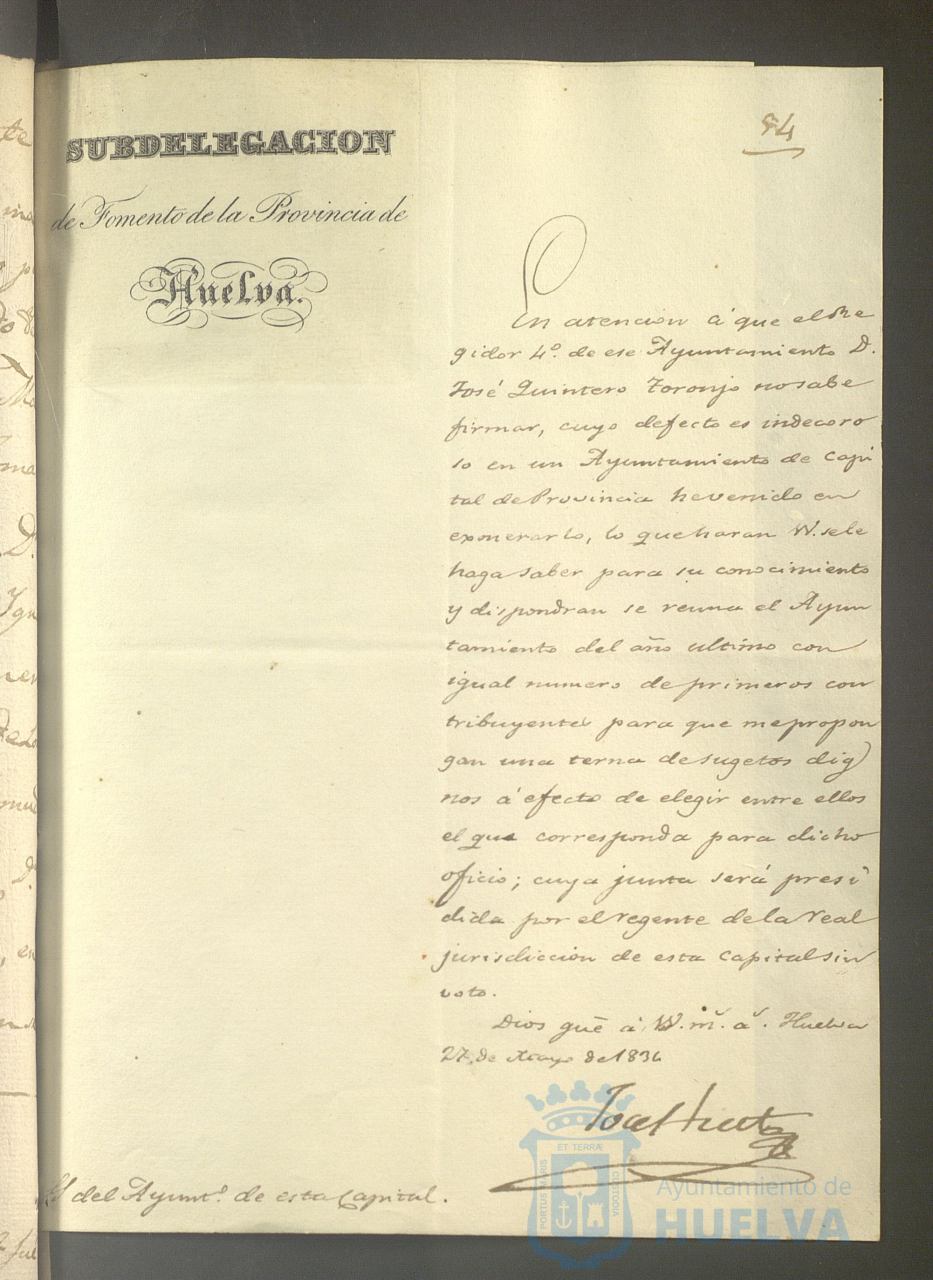 54
SUBDELEGACION
de Fomento de la Provincia de
Huelva.
En atencion á que el Re
gidor 4º. de ese Ayuntamiento D.
José Quintero Toronjo no sabe
firmar, cuyo defecto es indecoro
so en un Ayuntamiento de Capi
tal de Provincia he venido en
exonerarlo, lo que haran VV. se le
haga saber para su conocimiento
y dispondran se reuna el Ayun
tamiento del año ultimo con
igual numero de primeros con
tribuyentes para que me propon
gan una terna de sugetos dig
nos á efecto de elegir entre ellos
el que corresponda para dicho
oficio; cuya junta será presi
dida por el regente de la real
jurisdiccion de esta Capital sin
voto.
Dios gue á VV. m.s a.s. Huelva
27 de Mayo de 1834
José Huet
del Ayunt.º de esta Capital.
PORTUS MARIS ET TERRÆ CUSTODIA
Ayuntamiento de
HUELVA